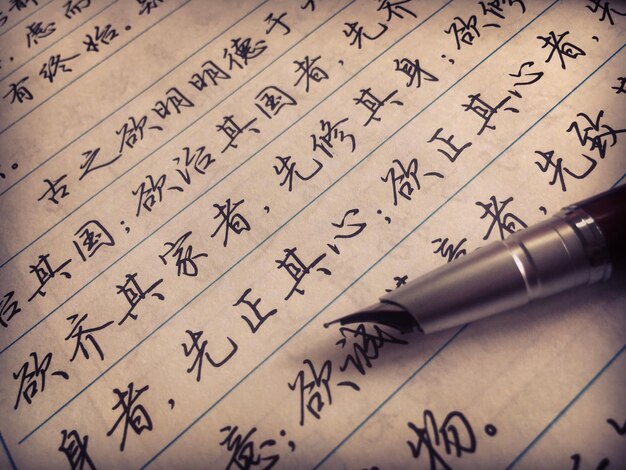 虑而
有终始。
古之欲明明德于
治其国；欲治其国者，先齐
欲齐其家者，先修其身；欲修
身者，先正其心；欲正其心者，先
意；欲诚其意者，先致
物。